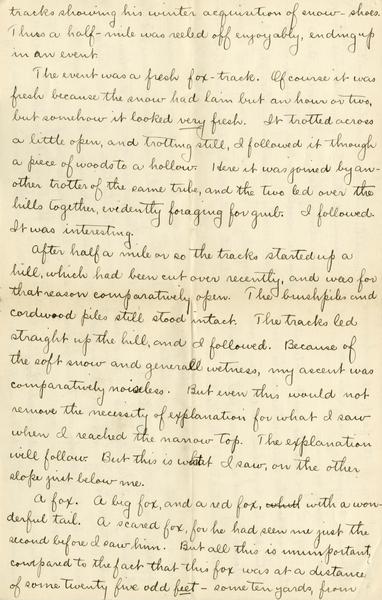 tracks showing his winter acquisition of snow-shoes.
Thus a half-mile was reeled off enjoyably, ending up
in an event.
The event was a fresh fox-track. Of course it was
fresh because the snow had lain but an hour or two,
but somehow it looked very fresh. It trotted across
a little open, and trotting still, I followed it through
a piece of woods to a hollow. Here it was joined by an-
other trotter of the same tribe, and the two led over the
hills together, evidently foraging for grub. I followed.
It was interesting.
After half a mile or so the tracks started up a
hill, which had been cut over recently, and was for
that reason comparatively open. The brushpiles and
cordwood piles still stood intact. The tracks led
straight up the hill, and I followed. Because of
the soft snow and general wetness, my ascent was
comparatively noiseless. But even this would not
remove the necessity of explanation for what I saw
when I reached the narrow top. The explanation
will follow. But this is what I saw, on the other
slope just below me.
A fox. A big fox, and a red fox, with a won-
derful tail. A scared fox, for he had seen me just the
second before I saw him. But all this is unimportant,
compared to the fact that this fox was at a distance
of some twenty five odd feet - some ten yards, from